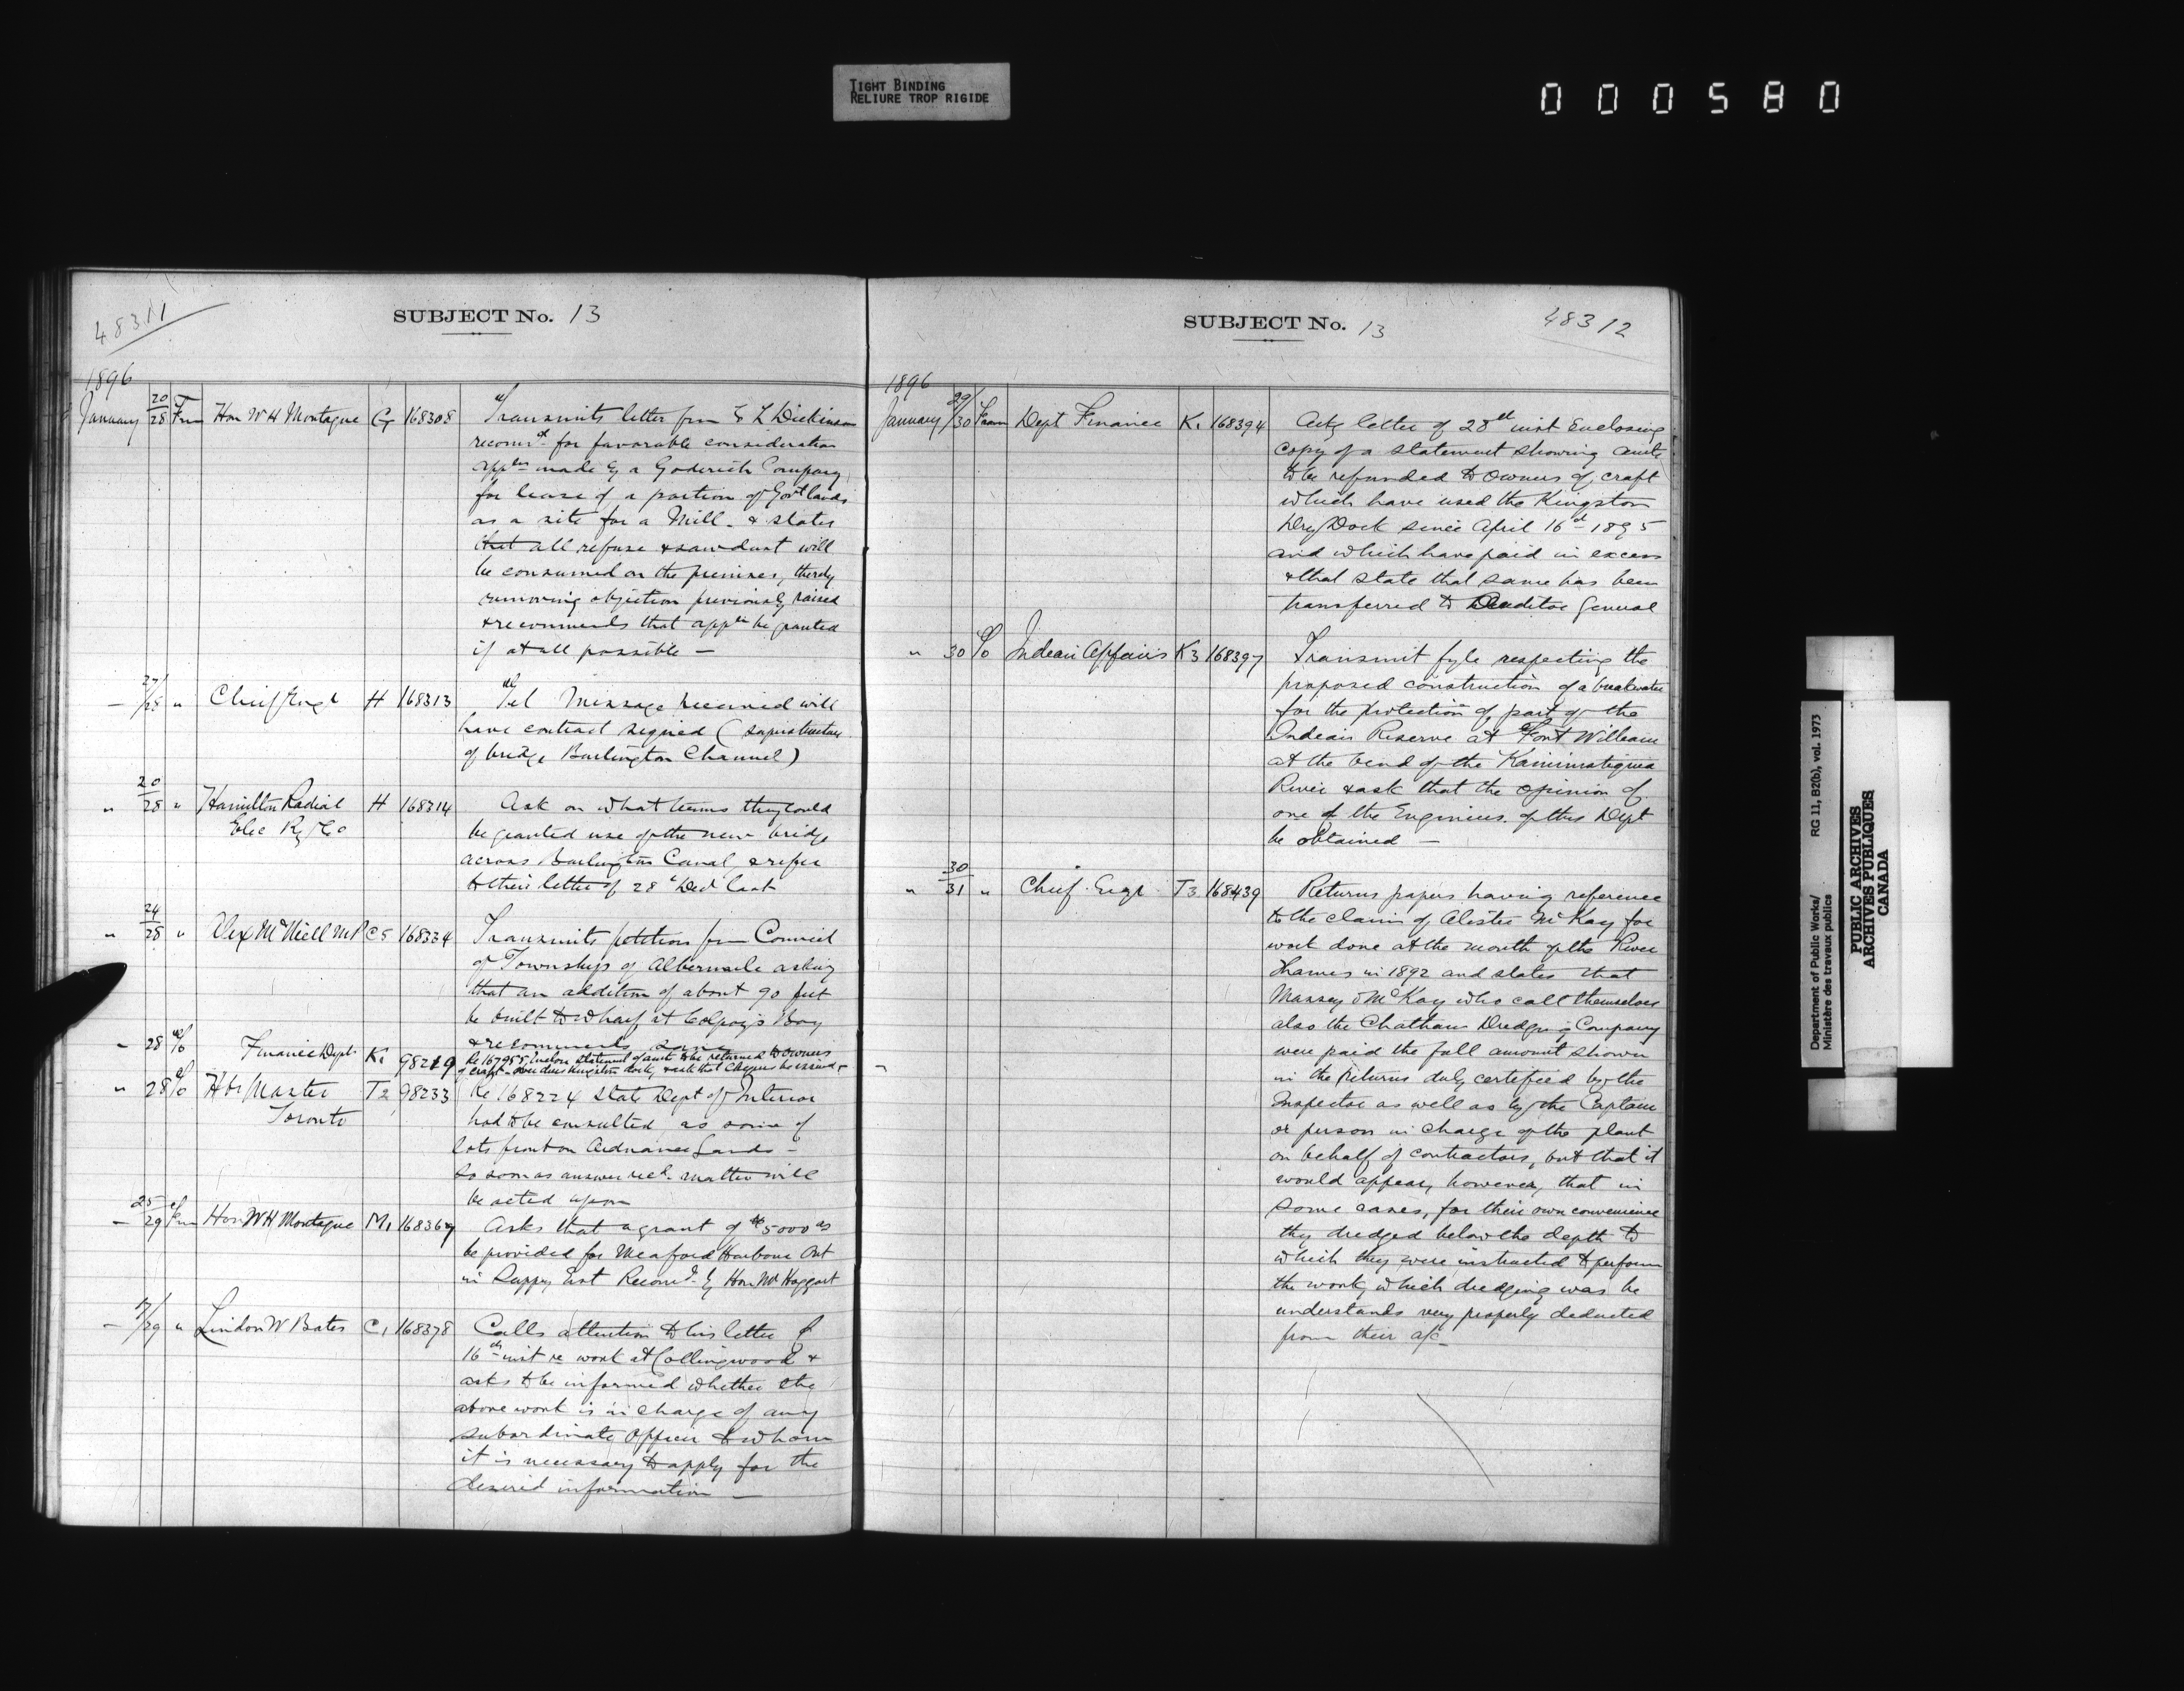 TIGHT BINDING
RELIURE TROP RIGIDE
000580
48311
SUBJECT No. 13
1896
January 20/28 Frm Hon W H Montague G 168308 Transmits letter from L Dickinson
recomdg for favorable consideration
appln made by a Goderich Company
for lease of a portion of Govt lands
as a site for a Mill - & states
that all refuse & sawdust will
be consumed on the premises, thereby
removing objection previously raised
& recommends that appln be granted
if at all possible —
— 27/28 " Chief Engr H 168313 Tel Message received will
have contract signed (superstructure
of bridge Burlington Channel)
" 20/28 " Hamilton Radial H 168314 Ask on what terms they could
Elec Ry Co be granted use of the new bridge
across Burlington Canal, & refer
to their letter of 28th Decr last
" 24/28 " Alex McNeill M P C5 168334 Transmits petition from Council
of Township of Albermarle asking
that an addition of about 90 feet
be built to wharf at Colpoys Bay
& recommends same
" 28 To Finance Dept K1 98219 Re 167955 Enclose statement of amts to be returned to owners
of craft - over dues Kingston dock, & ask that cheques be issued
" 28 To Hbr Master T2 98233 Re 168224 State Dept of Interior
Toronto had to be consulted, as some of
lots front on Ordnance Lands -
So soon as answer recd. matter will
be acted upon
— 25/29 Frm Hon W H Montague M1 168367 Asks that a grant of $5000 00
be provided for Meaford Harbour Ont
in Suppy Est Recomd. by Hon Mr Haggart
— 17/29 " Lindon W Bates C1 168378 Calls attention to his letter of
16th inst re work at Collingwood &
asks to be informed whether the
above work is in charge of any
subordinate officer to whom
it is necessary to apply for the
desired information —
SUBJECT No. 13
48312
1896
January 29/30 From Dept Finance K1 168394 Ackg letter of 28th inst Enclosing
copy of a statement showing amts
to be refunded to owners of craft
which have used the Kingston
Dry Dock since April 16th 1895
and which have paid in excess
& that state that same has been
transferred to Auditor General
" 30 To Indian Affairs K3 168397 Transmit fyle respecting the
proposed construction of a breakwater
for the protection of part of the
Indian Reserve at Fort William
at the bend of the Kaministiquia
River & ask that the opinion of
one of the Engineers of this Dept
be obtained —
" 30/31 " Chief Engr T3 168439 Returns papers having reference
to the claim of Alister McKay for
work done at the mouth of the River
Thames in 1892 and states that
Massey & McKay who call themselves
also the Chatham Dredging Company
were paid the full amount shown
in the Returns duly certified by the
Inspector as well as by the Captain
or person in charge of the plant
on behalf of contractors, but that it
would appear, however, that in
some cases, for their own convenience
they dredged below the depth to
which they were instructed to perform
the work, which dredging was he
understands very properly deducted
from their a/c —
Department of Public Works/ RG 11, B2(b), vol. 1973
Ministère des travaux publics
PUBLIC ARCHIVES
ARCHIVES PUBLIQUES
CANADA